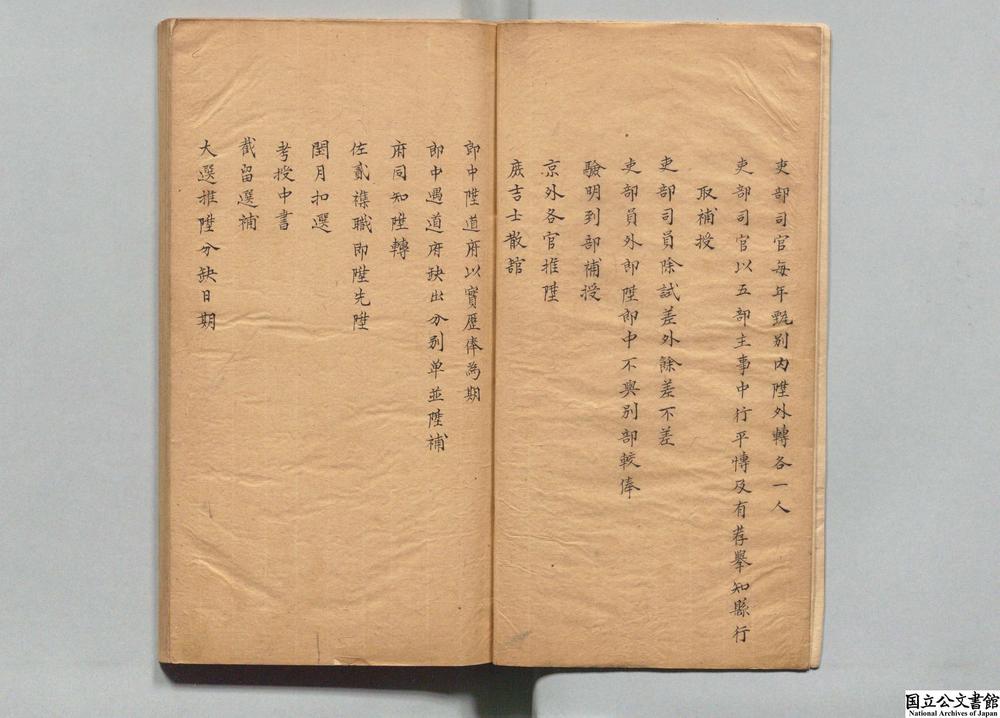 吏部司官每年甄别内陞外轉各一人
吏部司官以五部主事中行平慱及有荐舉知縣行
取補授
吏部司員除試差外餘差不差
吏部員外郎陞郎中不與别部較俸
驗明到部補授
京外各官推陞
庶吉士散舘
郎中陞道府以實歷俸為期
郎中遇道府缺出分别单並陞補
府同知陞轉
佐貳襍職即陞先陞
閏月扣選
考授中書
截留選補
大選推陞分缺日期
国立公文書館
National Archives of Japan